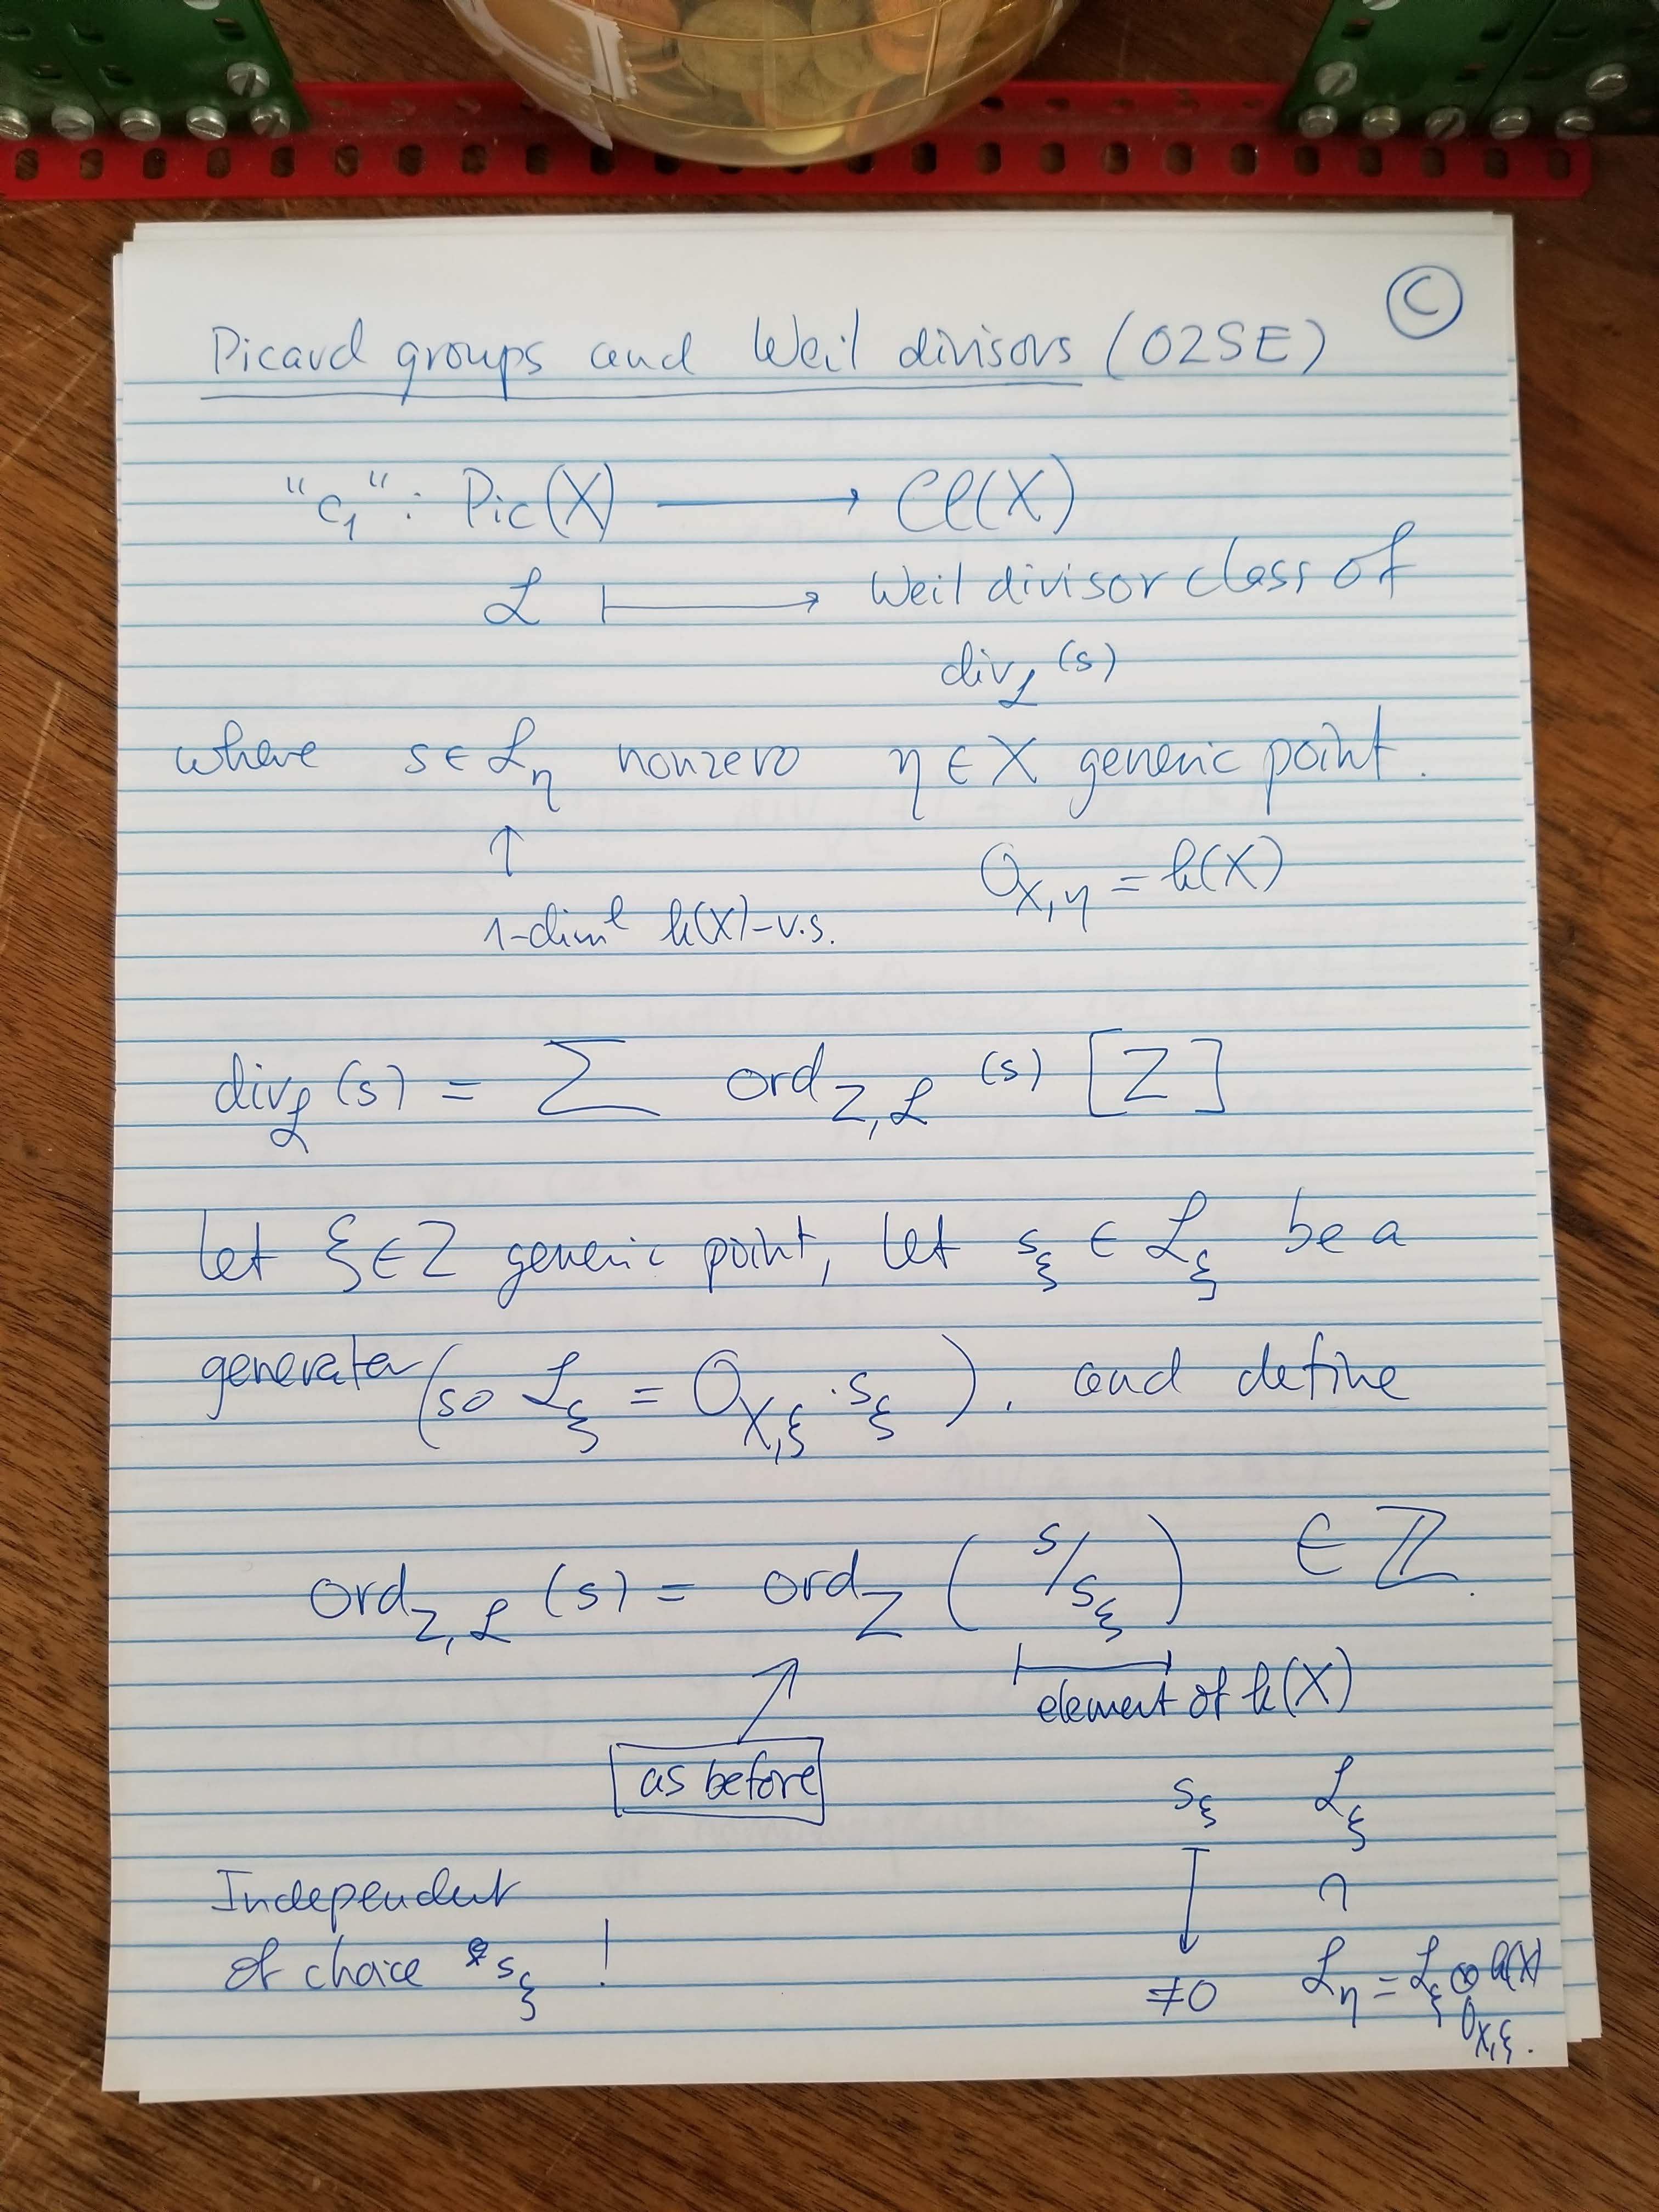 C
Picard groups and Weil divisors (02SE)
"c₁": Pic(X) ⟶ Cl(X)
ℒ ⟼ Weil divisor class of
div_ℒ (s)
where s ∈ ℒ_η nonzero η ∈ X generic point.
↑ O_{X,η} = k(X)
1-dim'l k(X)-v.s.
div_ℒ (s) = ∑ ord_{Z,ℒ} (s) [Z]
Let ξ ∈ Z generic point, let s_ξ ∈ ℒ_ξ be a
generator (so ℒ_ξ = O_{X,ξ} · s_ξ). and define
ord_{Z,ℒ} (s) = ord_Z ( s/s_ξ ) ∈ ℤ.
element of k(X)
as before
s_ξ ℒ_ξ
Independent
∩
of choice s_ξ !
≠0 ℒ_η = ℒ_ξ ⊗_{O_{X,ξ}} k(X).